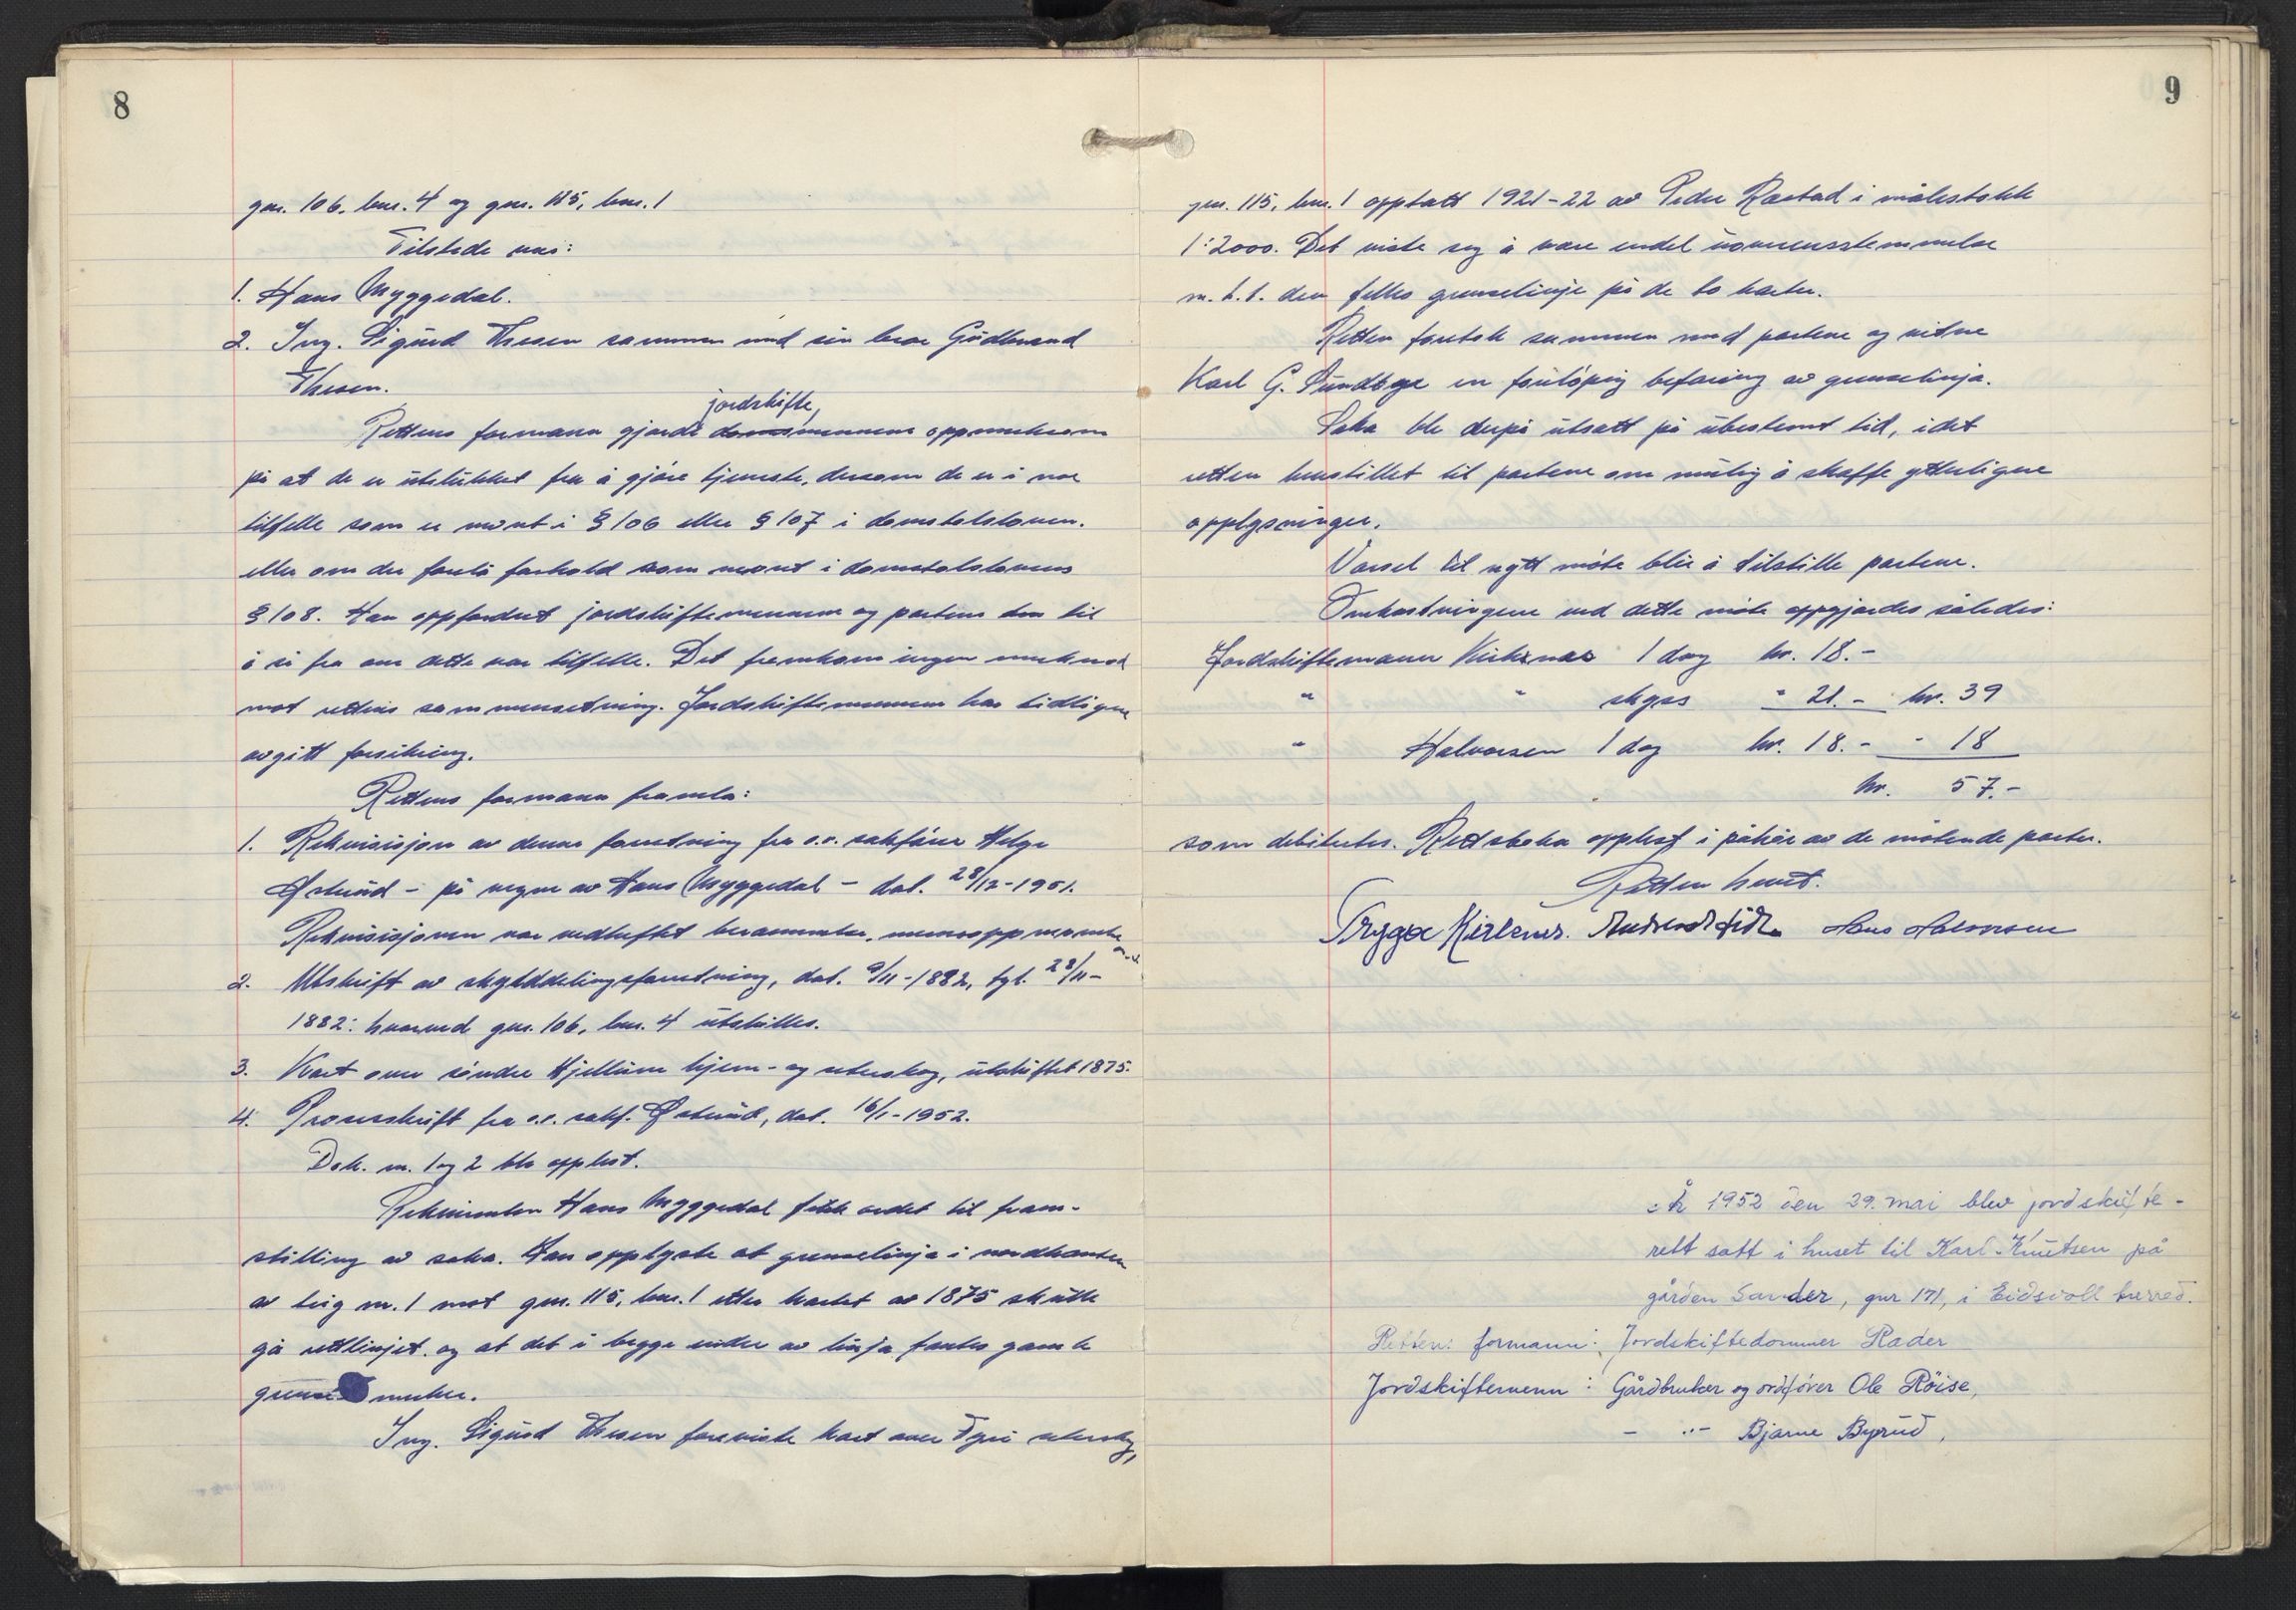 8
gnr. 106, bnr. 4 og gnr. 115, bnr. 1
Tilstede var:
1. Hans Myggedal.
2. Ing. Sigurd Thesen sammen med sin bror Gudbrand
Thesen.
jordskifte,
Rettens formann gjorde domsmennene oppmerksom
på at de er utelukket fra å gjøre tjeneste, dersom de er i noe
tilfelle som er nevnt i § 106 eller § 107 i domstolsloven,
eller om der forelå forhold som nevnt i domstolslovens
§ 108. Han oppfordret jordskiftemennene og partene om til
å si fra om dette var tilfelle. Det fremkom ingen merknad
mot rettens sammensetning. Jordskiftemennene har tidligere
avgitt forsikring.
Rettens formann framla:
1. Rekvisisjon av denne forretning fra o.r. sakfører Helge
Østerud - på vegne av Hans Myggedal - dat. 28/12-1951.
Rekvisisjonen var vedheftet berammelse,
2. Utskrift av skylddelingsforretning, dat. 9/11-1882, tgl. 28/11-
1882: hvorved gnr. 106, bnr. 4 utskilles.
3. Kart over søndre Hjellum hjem- og seterskog, utskiftet 1875.
4. Prosesskrift fra o.r. sakf. Østerud, dat. 16/1-1952.
Dok. nr. 1 og 2 ble opplest.
Rekvirenten Hans Myggedal fikk ordet til fram-
stilling av saka. Han opplyste at grenselinja i nordkanten
av teig nr. 1 mot gnr. 115, bnr. 1 etter kartet av 1875 skulle
gå rettlinjet, og at det i begge ender av linja fantes gamle
grense merker.
Ing. Sigurd Thesen foreviste kart over Tyri seterskog,
9
gnr. 115, bnr. 1 opptatt 1921-22 av Peder Rastad i målestokk
1:2000. Det viste seg å være endel uoverensstemmelse
m.h.t. den felles grenselinje på de to karter.
Retten foretok sammen med partene og vitne
Karl G. Sundbye en foreløpig befaring av grenselinja.
Saka ble derpå utsatt på ubestemt tid, idet
retten henstillet til partene om mulig å skaffe ytterligere
opplysninger.
Varsel til nytt møte blir å tilstille partene.
Omkostningene ved dette møte oppgjordes således:
Jordskiftemann Kirkenær 1 dag kr. 18.-
" " skyss " 21.- kr. 39
" Halvorsen 1 dag kr. 18.- - 18
kr. 57.-
som debiteres. Rettsboka opplest i påhør av de møtende parter.
Retten hevet.
Trygve Kirkenær. Hans Halvorsen
År 1952 den 29. mai blev jordskifte-
rett satt i huset til Karl Knutsen på
gården Sander, gnr 171, i Eidsvoll herred.
Rettens formann: Jordskiftedommer Rader
Jordskiftemenn: Gårdbruker og ordfører Ole Röise,
- " - Bjarne Byrud,